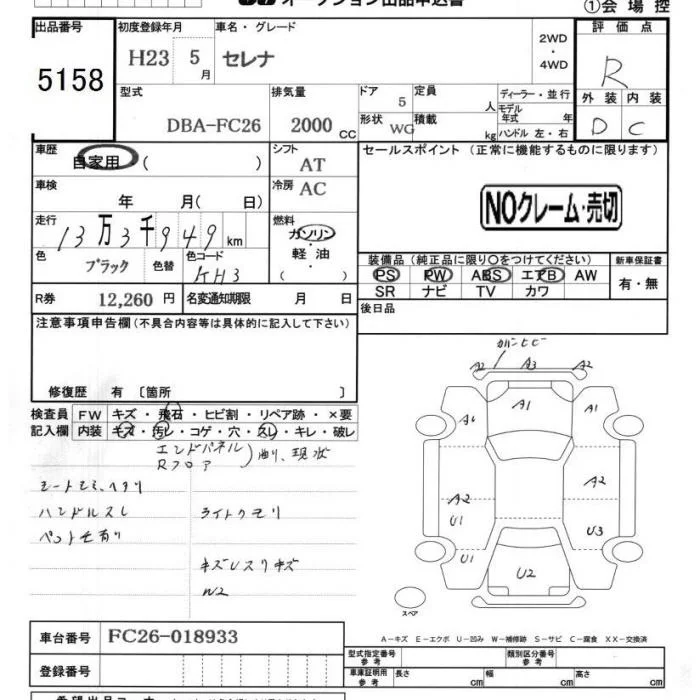 オークション出品申込書
①会場控
出品番号 5158
初度登録年月 H23 5月
車名・グレード セレナ
2WD・4WD
評価点 R
型式 DBA-FC26
排気量 2000 CC
ドア 5
定員 人
ディーラー・並行
モデル年式 年
形状 WG
積載 kg
ハンドル 左・右
外装 内装
D C
車歴 自家用 ( )
シフト AT
セールスポイント (正常に機能するものに限ります)
車検 年 月( 日)
冷房 AC
NOクレーム・売切
走行 13万3千949 km
燃料 ガソリン・軽油・( )
色 ブラック 色替
色コード KH3
装備品 (純正品に限り○をつけてください)
新車保証書
PS PW ABS エアB AW
SR ナビ TV カワ
有・無
R券 12,260 円
名変通知期限 月 日
後日品
注意事項申告欄 (不具合内容等は具体的に記入して下さい)
修復歴 有 〔箇所 〕
検査員記入欄
FW キズ・飛石・ヒビ割・リペア跡・×要
内装 キズ・汚レ・コゲ・穴・スレ・キレ・破レ
エンドパネル
Rフロア
曲り、現状
ハンドルスレ
ライトクモリ
ペット毛有り
W2
A2 A3 A2
A1 A1
A2 A2
U1 U3
U1 U2
スペア
A-キズ E-エクボ U-凹み W-補修跡 S-サビ C-腐食 XX-交換済
車台番号 FC26-018933
型式指定番号 参考
類別区分番号 参考
登録番号
車庫証明用 参考 長さ cm 幅 cm 高さ cm